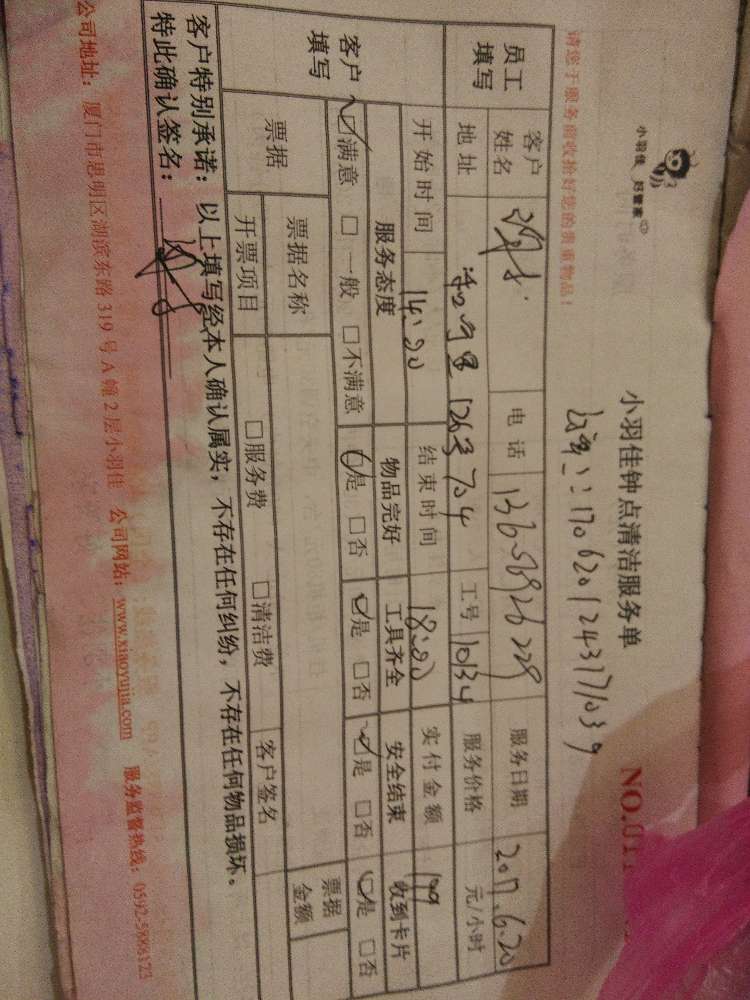 小羽佳 好管家
小羽佳钟点清洁服务单
NO.011
请您于服务前收拾好您的贵重物品!
1706201243171039
员工填写 客户姓名 电话 服务日期 2017.6.20
地址 704 工号 10134 服务价格 元/小时
开始时间 14:00 结束时间 18:00 实付金额 199
客户填写 服务态度 物品完好 工具齐全 安全结束 收到卡片
☑满意 □一般 □不满意 ☑是 □否 ☑是 □否 ☑是 □否 ☑是 □否
票据 票据名称 票据金额
开票项目 □服务费 □清洁费 客户签名
客户特别承诺:以上填写经本人确认属实,不存在任何纠纷,不存在任何物品损坏。
特此确认签名:
公司地址:厦门市思明区湖滨东路319号A幢2层小羽佳 公司网站:www.xiaoyujia.com 服务监督热线:0592-5886123